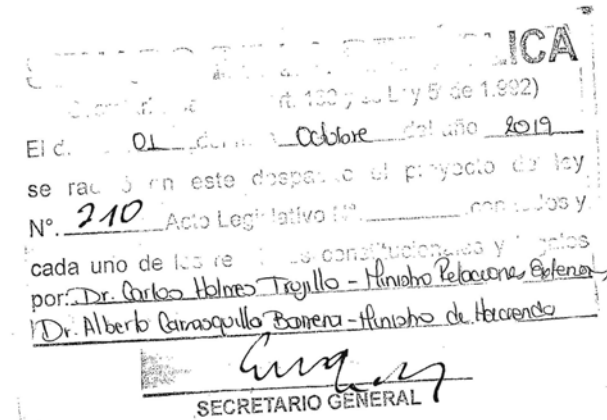 LICA
y 5 de 1.992)
El d. 01 Octobre del año 2019
se rad en este despa o el proyecto de ley
N°. 210 Acto Legislativo N°. con todos y
cada uno de los re constitucionales y legales
por: Dr. Carlos Holmes Trujillo - Ministro Relaciones Exteriores
Dr. Alberto Carrasquilla Barrera - Ministro de Hacienda
SECRETARIO GENERAL